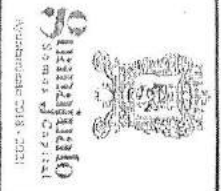 Guanajuato
Somos Capital
AYUNTAMIENTO 2018 - 2021